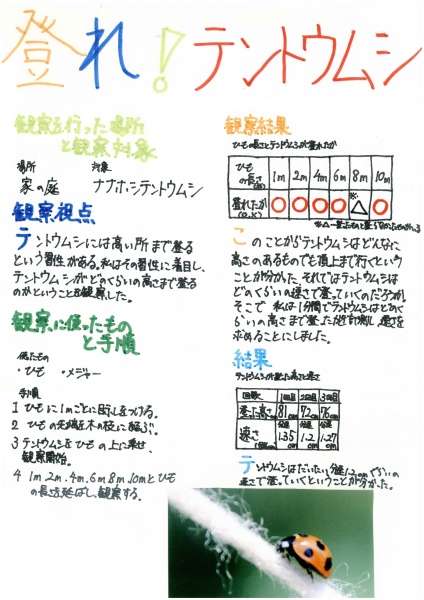 登れ!テントウムシ
観察を行った場所
と観察対象
場所 対象
家の庭 ナナホシテントウムシ
観察視点
テントウムシには高い所まで登る
という習性がある。私はその習性に着目し、
テントウムシがどのくらいの高さまで登る
のかということを観察した。
観察に使ったもの
と手順
使ったもの
・ひも ・メジャー
手順
1 ひもに1mごとに印をつける。
2 ひもの先端を木の枝に結ぶ。
3 テントウムシをひもの上に乗せ、
観察開始。
4 1m 2m .4m.6m 8m 10mとひも
の長さを延ばし、観察する。
観察結果
ひもの長さとテントウムシが登れたか
ひもの長さ(m) 1m 2m 4m 6m 8m 10m
登れたか(○,×) ○ ○ ○ ○ ※△ ○
このことからテントウムシはどんなに
高さのあるものでも頂上まで行くという
ことが分かった。それではテントウムシは
どのくらいの速さで登っていくのだろうか。
そこで 私は1分間でテントウムシはどのく
らいの高さまで登ったかを計測し 速さを
求めることにしました。
結果
テントウムシが登った高さと速さ
回数 1回目 2回目 3回目
登った高さ 81cm 72cm 76cm
速さ 分速1.35cm 分速1.2cm 分速1.27cm
テントウムシはだいたい分速1.2cmぐらいの
速さで登っていくということが分かった。